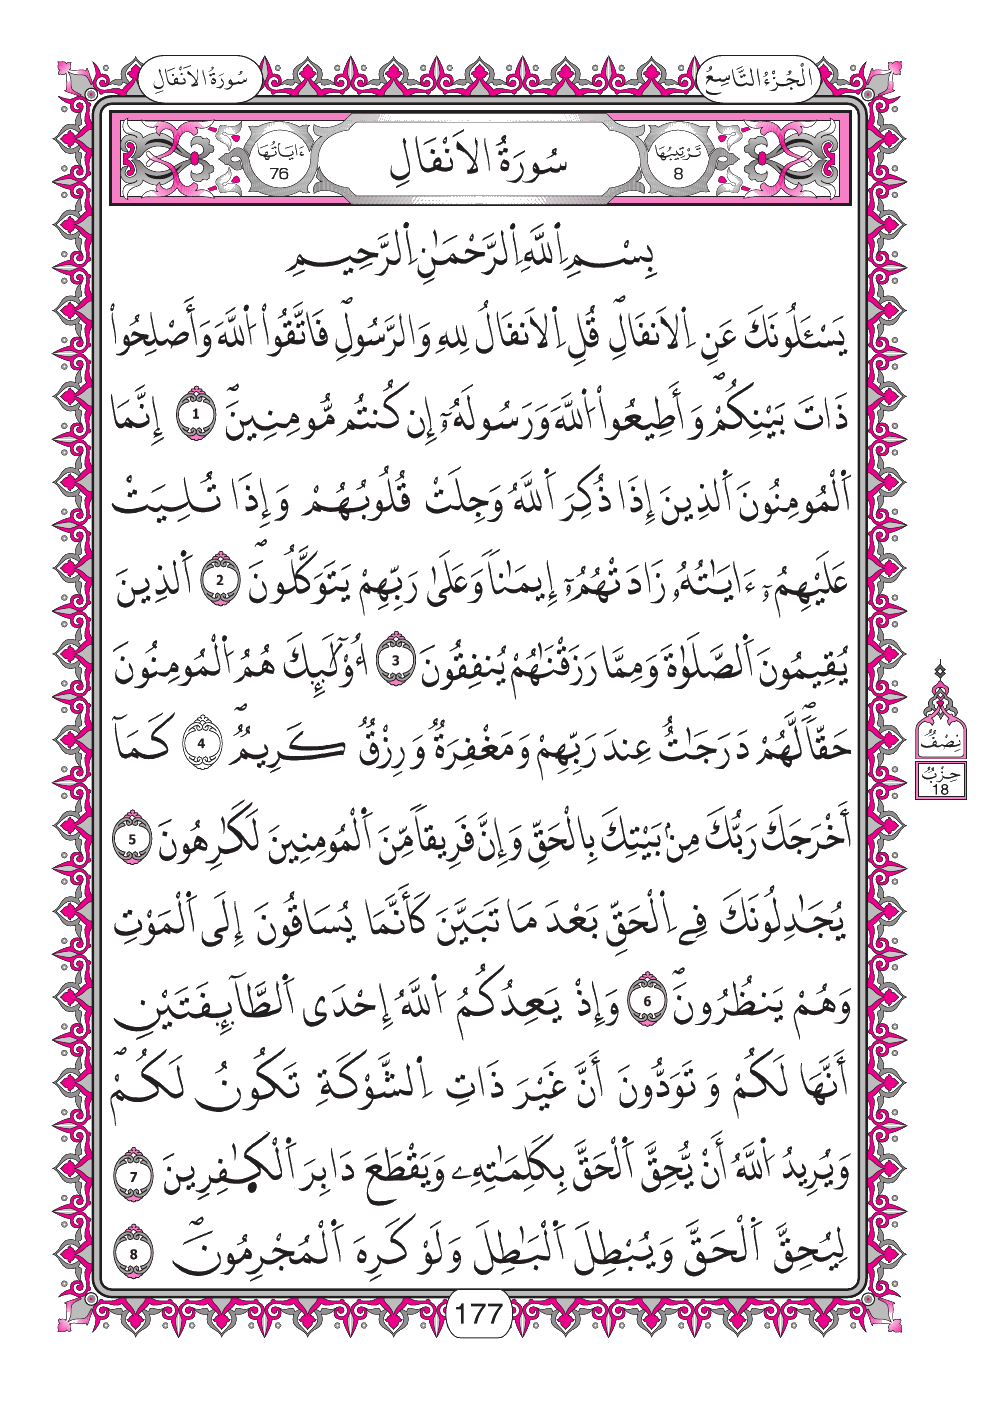 الْجُزْءُ التَّاسِعُ
سُورَةُ الاَنْفَالِ
تَرْتِيبُهَا 8
سُورَةُ الاَنْفَالِ
ءَايَاتُهَا 76
بِسْمِ اِ۬للَّهِ اِ۬لرَّحْمَٰنِ اِ۬لرَّحِيمِ
يَسْـَٔلُونَكَ عَنِ اِ۬لَانفَالِۖ قُلِ اِ۬لَانفَالُ لِلهِ وَالرَّسُولِۖ فَاتَّقُواْ اُ۬للَّهَ وَأَصْلِحُواْ
ذَاتَ بَيْنِكُمْۖ وَأَطِيعُواْ اُ۬للَّهَ وَرَسُولَهُۥٓ إِن كُنتُم مُّومِنِينَۖ 1 إِنَّمَا
اَ۬لْمُومِنُونَ اَ۬لذِينَ إِذَا ذُكِرَ اَ۬للَّهُ وَجِلَتْ قُلُوبُهُمْ وَإِذَا تُلِيَتْ
عَلَيْهِمُۥٓ ءَايَٰتُهُۥ زَادَتْهُمُۥٓ إِيمَٰناٗ وَعَلَىٰ رَبِّهِمْ يَتَوَكَّلُونَۖ 2 اَ۬لذِينَ
يُقِيمُونَ اَ۬لصَّلَوٰةَ وَمِمَّا رَزَقْنَٰهُمْ يُنفِقُونَ 3 أُوْلَٰٓئِكَ هُمُ اُ۬لْمُومِنُونَ
حَقّاٗۖ لَّهُمْ دَرَجَٰتٌ عِندَ رَبِّهِمْ وَمَغْفِرَةٞ وَرِزْقٞ كَرِيمٞۖ 4 كَمَآ
أَخْرَجَكَ رَبُّكَ مِنۢ بَيْتِكَ بِالْحَقِّ وَإِنَّ فَرِيقاٗ مِّنَ اَ۬لْمُومِنِينَ لَكَٰرِهُونَ 5
يُجَٰدِلُونَكَ فِے اِ۬لْحَقِّ بَعْدَ مَا تَبَيَّنَ كَأَنَّمَا يُسَاقُونَ إِلَى اَ۬لْمَوْتِ
وَهُمْ يَنظُرُونَۖ 6 وَإِذْ يَعِدُكُمُ اُ۬للَّهُ إِحْدَى اَ۬لطَّآئِفَتَيْنِ
أَنَّهَا لَكُمْ وَتَوَدُّونَ أَنَّ غَيْرَ ذَاتِ اِ۬لشَّوْكَةِ تَكُونُ لَكُمْۖ
وَيُرِيدُ اُ۬للَّهُ أَنْ يُّحِقَّ اَ۬لْحَقَّ بِكَلِمَٰتِهِۦ وَيَقْطَعَ دَابِرَ اَ۬لْكٰ۪فِرِينَ 7
لِيُحِقَّ اَ۬لْحَقَّ وَيُبْطِلَ اَ۬لْبَٰطِلَ وَلَوْ كَرِهَ اَ۬لْمُجْرِمُونَۖ 8
نِصْفُ
حِزْبُ 18
177